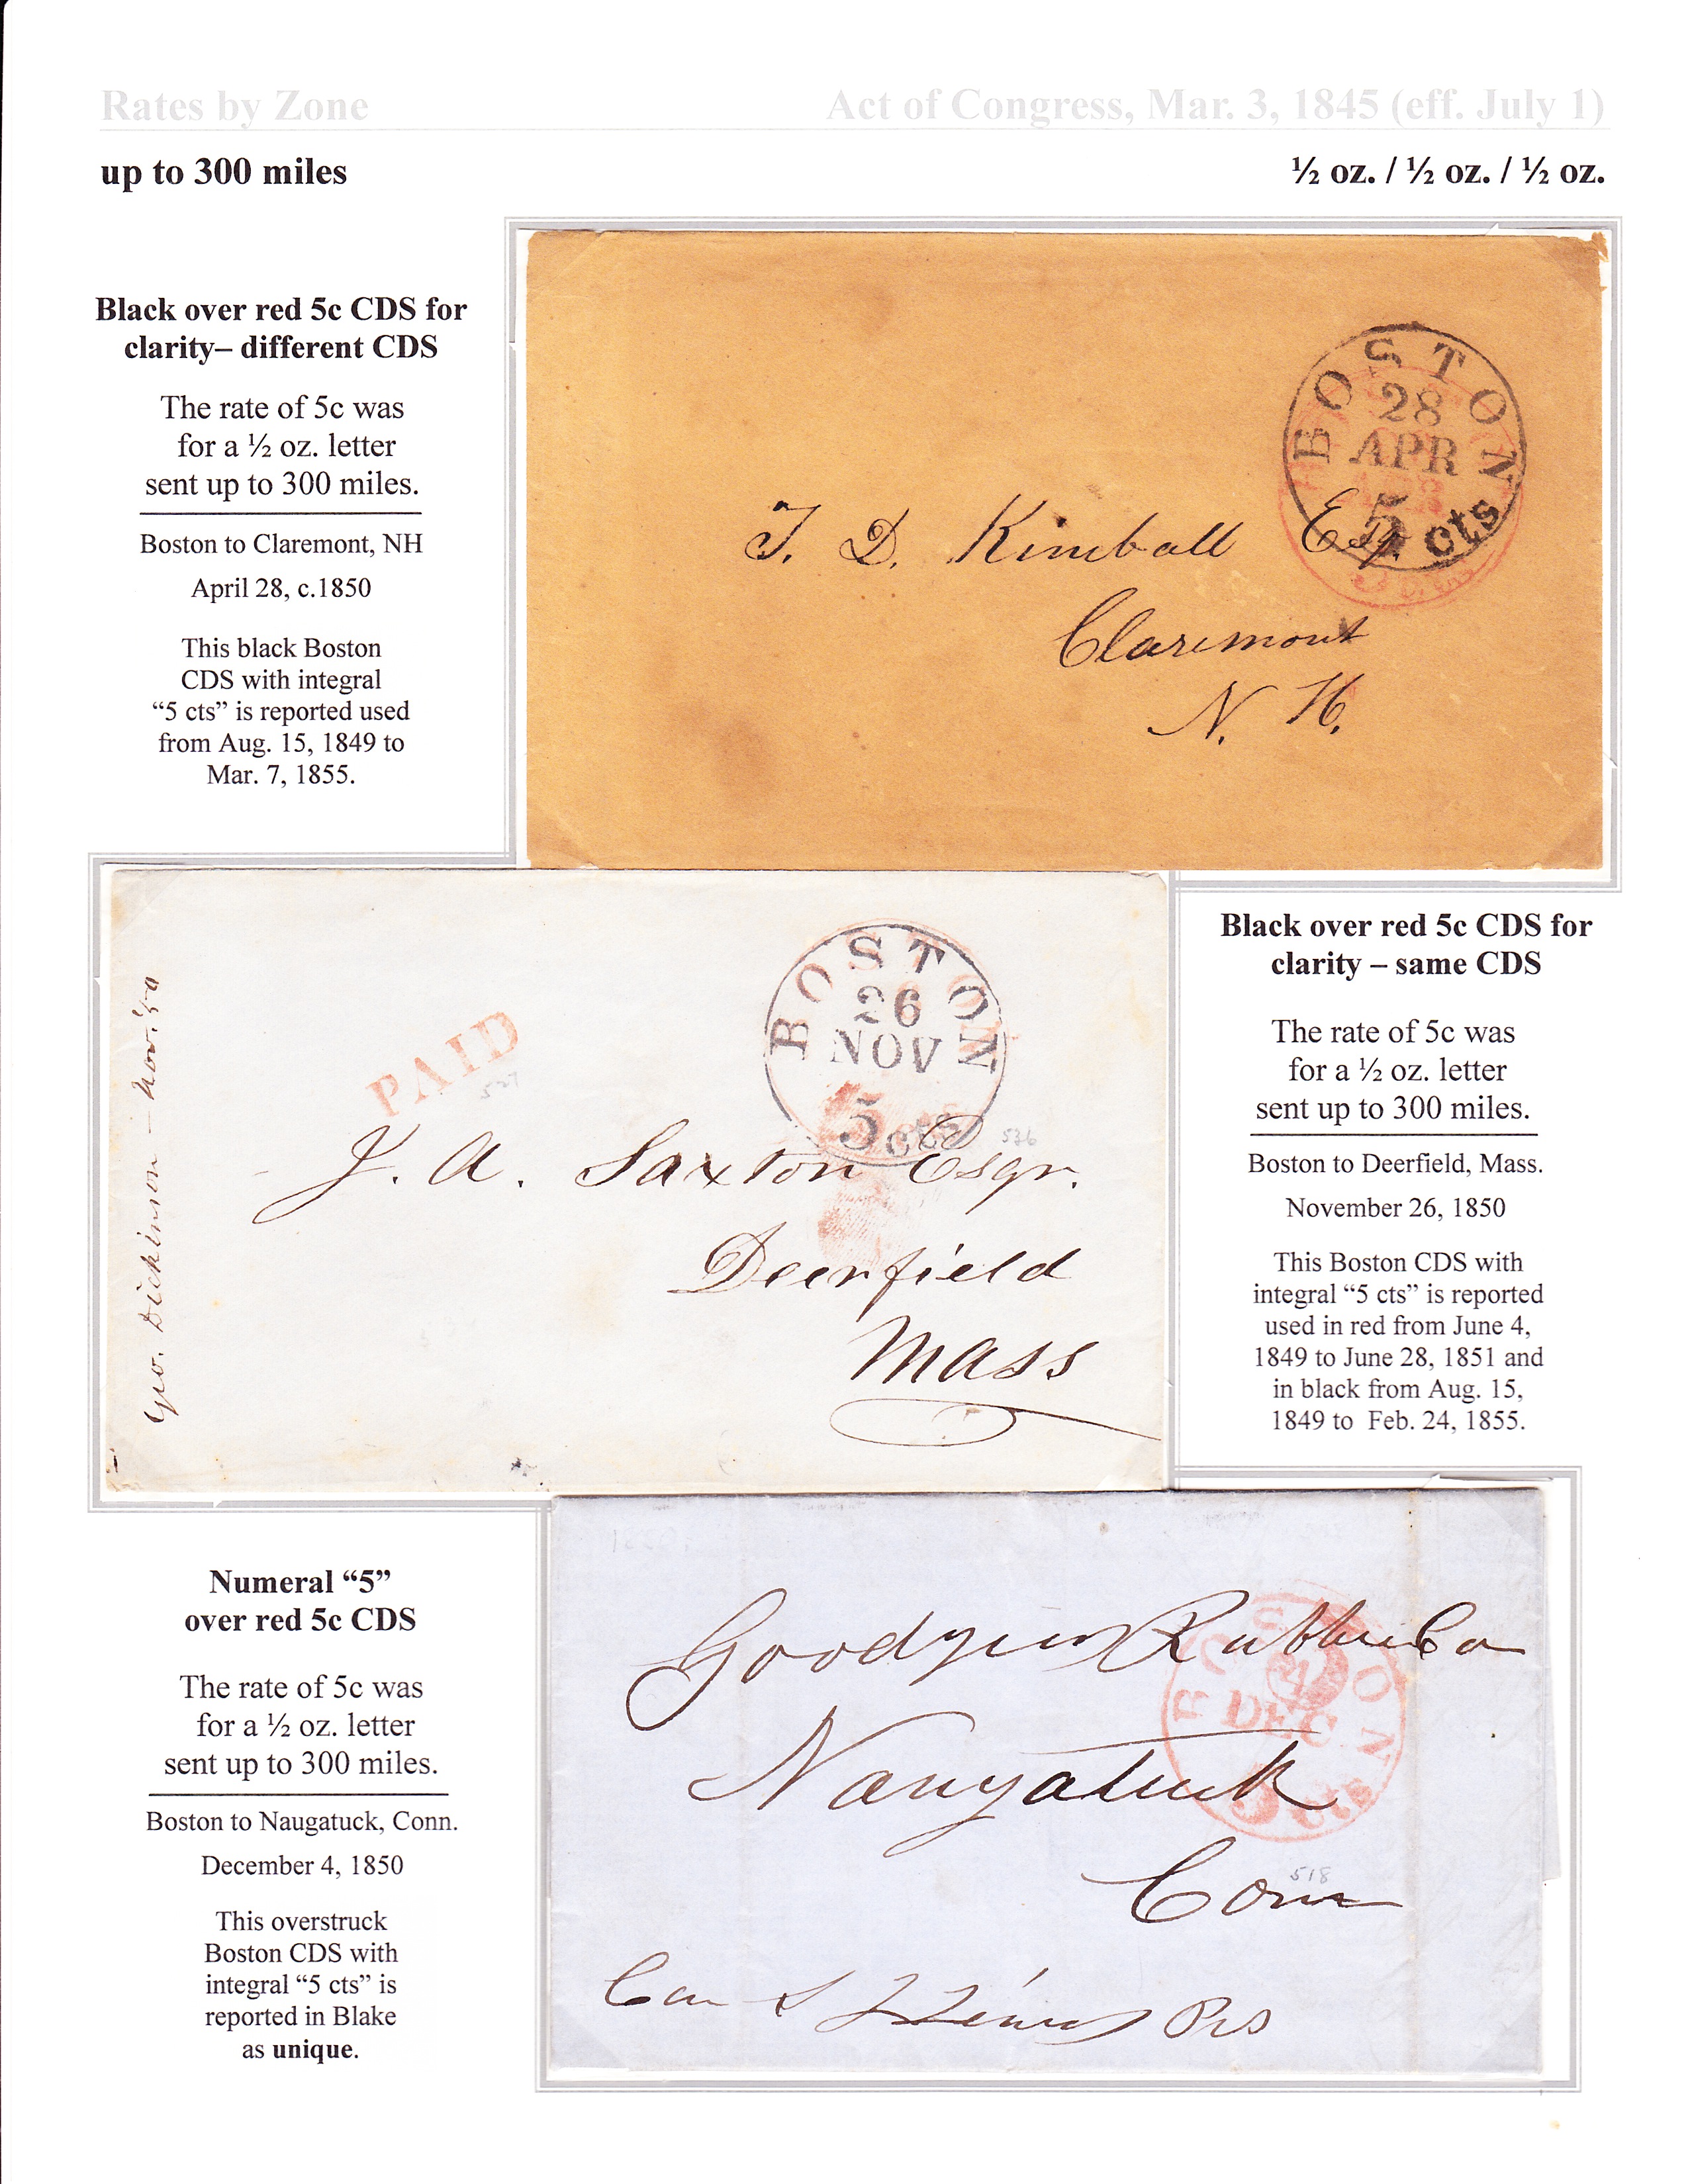 Rates by Zone
Act of Congress, Mar. 3, 1845 (eff. July 1)
up to 300 miles
½ oz. / ½ oz. / ½ oz.
Black over red 5c CDS for
clarity– different CDS
The rate of 5c was
for a ½ oz. letter
sent up to 300 miles.
Boston to Claremont, NH
April 28, c.1850
This black Boston
CDS with integral
“5 cts” is reported used
from Aug. 15, 1849 to
Mar. 7, 1855.
BOSTON
28
APR
5 cts
T. D. Kimball Esq.
Claremont
N. H.
Geo. Dickinson — Nov. '50
PAID
527
BOSTON
26
NOV
5 cts
536
J. A. Saxton Esqr.
Deerfield
Mass
Black over red 5c CDS for
clarity – same CDS
The rate of 5c was
for a ½ oz. letter
sent up to 300 miles.
Boston to Deerfield, Mass.
November 26, 1850
This Boston CDS with
integral “5 cts” is reported
used in red from June 4,
1849 to June 28, 1851 and
in black from Aug. 15,
1849 to Feb. 24, 1855.
Numeral “5”
over red 5c CDS
The rate of 5c was
for a ½ oz. letter
sent up to 300 miles.
Boston to Naugatuck, Conn.
December 4, 1850
This overstruck
Boston CDS with
integral “5 cts” is
reported in Blake
as unique.
BOSTON
4
DEC
5 cts
Goodyear Rubber Co
Naugatuck
Conn
518